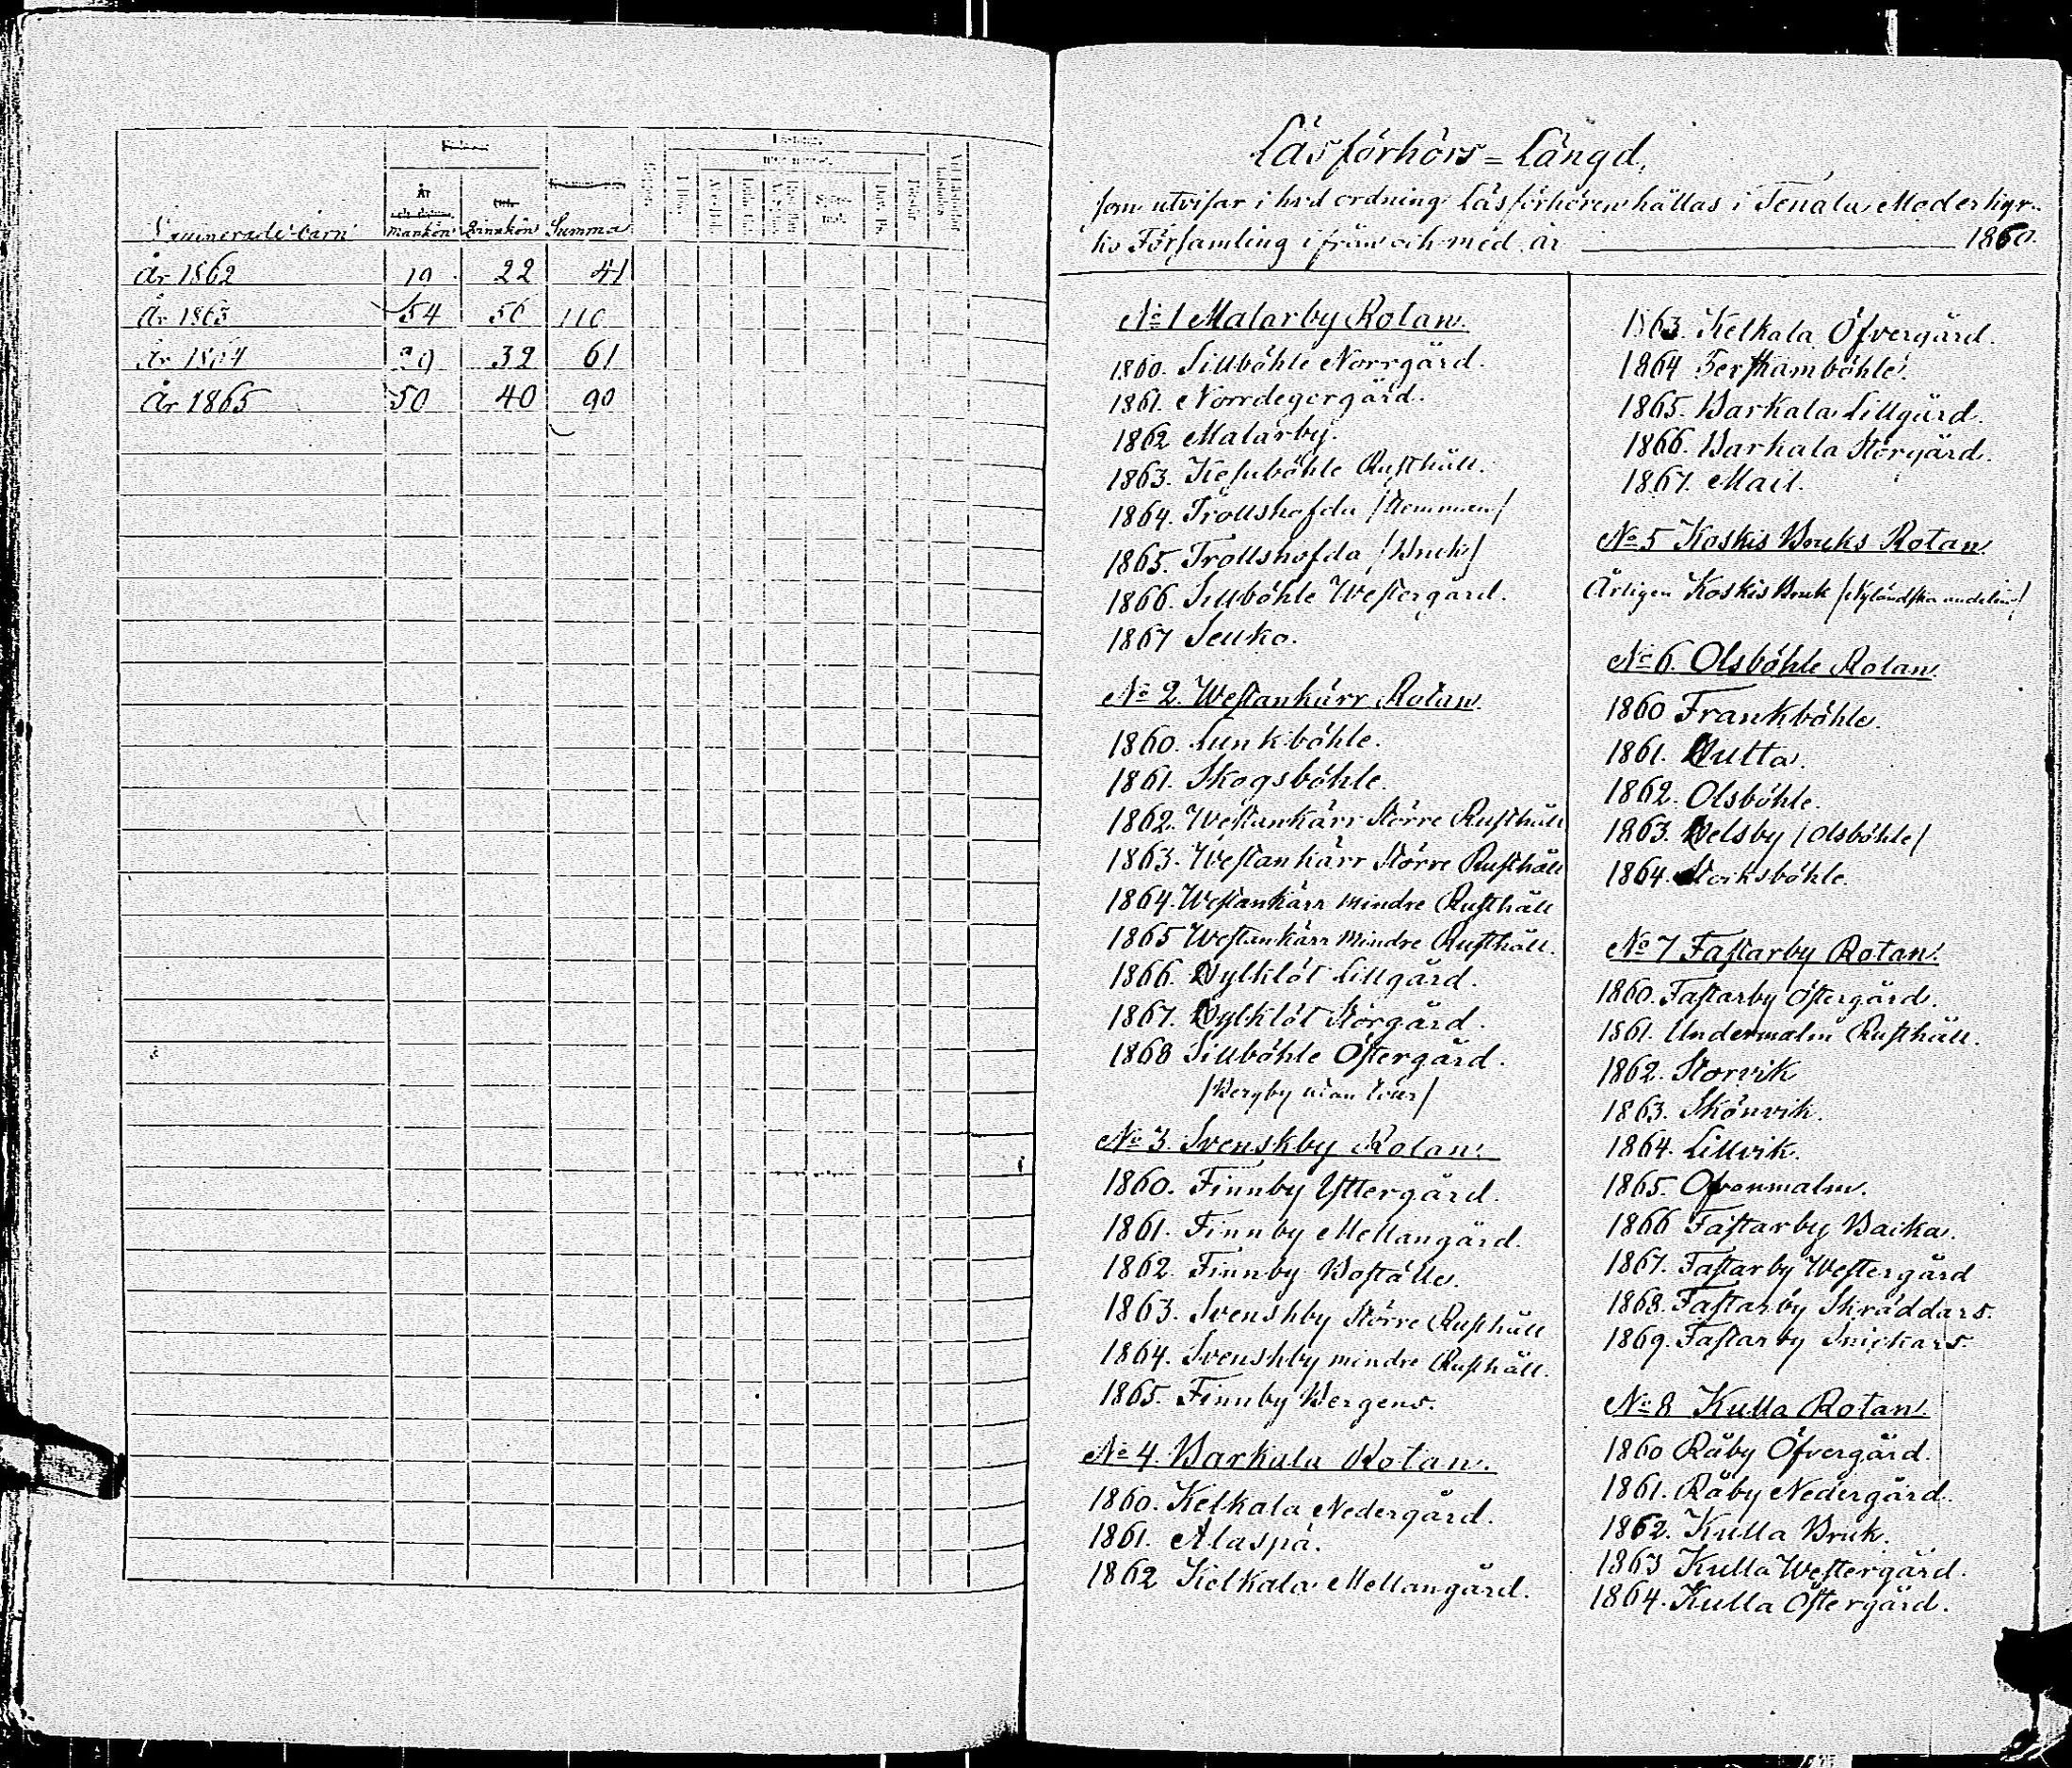 Vaccinerade barn Mankön Qvinnkön Summa
År 1862 19 22 41
År 1863 54 56 110
År 1864 29 32 61
År 1865 50 40 90
Läsförhörs=Längd,
som utvisar i hvad ordning Läsförhören hållas i Tenala Moderkyr-
ko Församling ifrån och med år 1860.
No 1 Malarby Rotan.
1860. Lillböhle Norrgård.
1861. Norrdegergård.
1862 Malarby.
1863. Kesuböhle Rusthåll.
1864. Trollshofda /Hemman/
1865. Trollshofda /Bruk/
1866. Lillböhle Westergård.
1867 Leuko.
No 2. Westankärr Rotan.
1860. Lunkböhle.
1861. Skogsböhle.
1862. Westankärr Större Rusthåll
1863. Westankärr Större Rusthåll
1864. Westankärr mindre Rusthåll
1865 Westankärr Mindre Rusthåll.
1866. Bylklöt Lillgård.
1867. Bylklöt Storgård.
1868 Lillböhle Östergård.
/Bergby utan tour/
No 3. Svenskby Rotan.
1860. Finnby Yttergård.
1861. Finnby Mellangård.
1862. Finnby Boställe.
1863. Svenskby Större Rusthåll
1864. Svenskby mindre Rusthåll.
1865. Finnby Bergens.
No 4. Barkala Rotan.
1860. Kelkala Nedergård.
1861. Alaspä.
1862 Kelkala Mellangård.
1863. Kelkala Öfvergård.
1864 Gerkhamböhle.
1865. Barkala Lillgård.
1866. Barkala Storgård.
1867. Mail.
No 5 Koskis Bruks Rotan
Årligen Koskis Bruk /Nyländska andelen/
No 6. Olsböhle Rotan.
1860 Frankböhle.
1861. Dutta.
1862. Olsböhle.
1863. Delsby /Olsböhle/
1864. Storksböhle.
No 7 Fastarby Rotan.
1860. Fastarby Östergård.
1861. Undermalm Rusthåll.
1862. Storvik
1863. Skönvik.
1864. Lillvik.
1865. Ofvanmalm.
1866 Fastarby Backa.
1867. Fastarby Westergård
1868. Fastarby Skräddars.
1869. Fastarby Snickars.
No 8 Kulla Rotan.
1860 Råby Öfvergård.
1861. Råby Nedergård.
1862. Kulla Bruk.
1863 Kulla Westergård.
1864. Kulla Östergård.